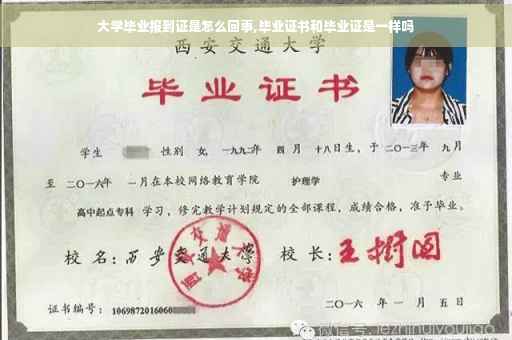 大学毕业报到证是怎么回事,毕业证书和毕业证是一样吗
西安交通大学
毕业证书
学生 性别 女, 一九九二年 四 月 十八日生, 于 二〇一三年 九月
至 二〇一六年 一月在本校网络教育学院 护理学 专业
高中起点专科 学习, 修完教学计划规定的全部课程, 成绩合格, 准予毕业。
校 名: 西安交通大学 校 长: 王树国
西安交通大学
证书编号: 1069872016060
二〇一六 年 一 月 五 日
微信号: iezhihuiyoujiao